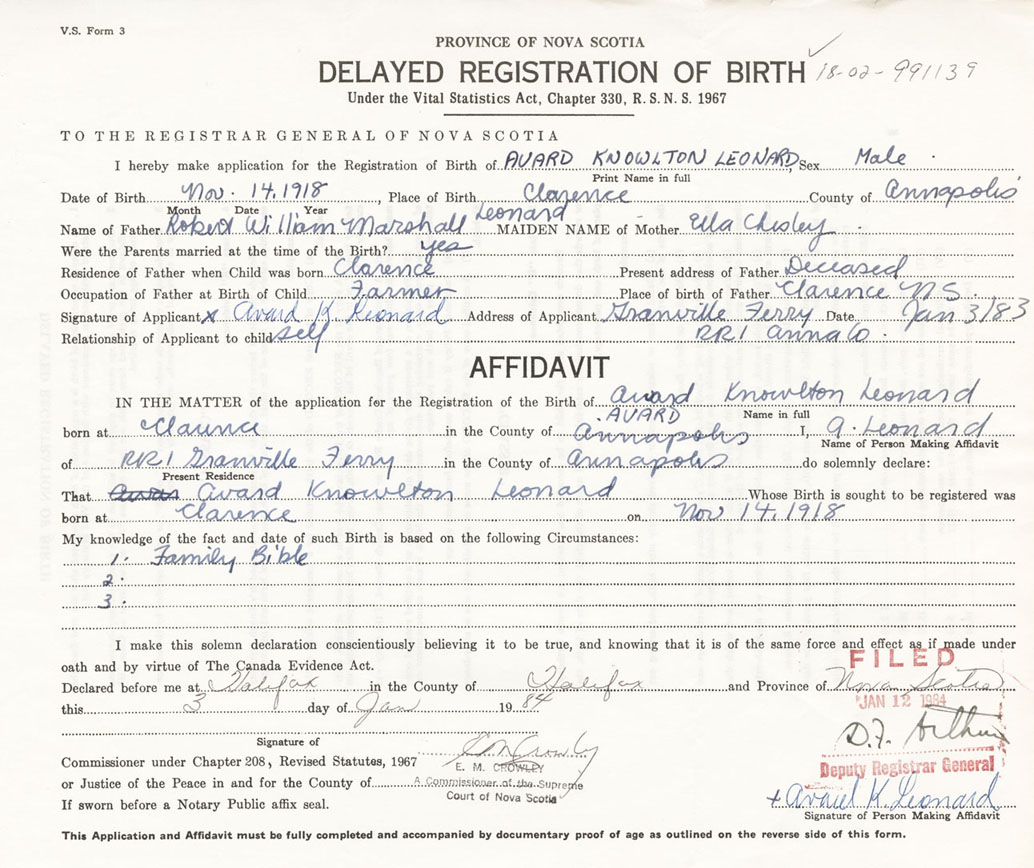 V.S. Form 3
PROVINCE OF NOVA SCOTIA
DELAYED REGISTRATION OF BIRTH 18-02-991139
Under the Vital Statistics Act, Chapter 330, R.S.N.S. 1967
TO THE REGISTRAR GENERAL OF NOVA SCOTIA
I hereby make application for the Registration of Birth of AVARD KNOWLTON LEONARD, Sex Male
Print Name in full
Date of Birth Nov. 14. 1918, Place of Birth Clarence County of Annapolis
Month Date Year
Name of Father Robert William Marshall Leonard MAIDEN NAME of Mother Ella Chesley
Were the Parents married at the time of the Birth? yes
Residence of Father when Child was born Clarence Present address of Father Deceased
Occupation of Father at Birth of Child Farmer Place of birth of Father Clarence NS.
Signature of Applicant x Avard K. Leonard Address of Applicant Granville Ferry Date Jan 3/83
Relationship of Applicant to child self RR1 Anna Co.
AFFIDAVIT
IN THE MATTER of the application for the Registration of the Birth of Avard Knowlton Leonard
AVARD Name in full
born at Clarence in the County of Annapolis I, A. Leonard
Name of Person Making Affidavit
of RR1 Granville Ferry in the County of Annapolis do solemnly declare:
Present Residence
That Avard Knowlton Leonard Whose Birth is sought to be registered was
born at Clarence on Nov 14, 1918
My knowledge of the fact and date of such Birth is based on the following Circumstances:
1. Family Bible
2.
3.
I make this solemn declaration conscientiously believing it to be true, and knowing that it is of the same force and effect as if made under
oath and by virtue of The Canada Evidence Act.
FILED
Declared before me at Halifax in the County of Halifax and Province of Nova Scotia
this 3 day of Jan 1984
JAN 12 1984
D.F. Arthur
Signature of
Commissioner under Chapter 208, Revised Statutes, 1967
E M Crowley
E. M. CROWLEY
Deputy Registrar General
or Justice of the Peace in and for the County of A Commissioner of the Supreme
Court of Nova Scotia
If sworn before a Notary Public affix seal.
+ Avard K. Leonard
Signature of Person Making Affidavit
This Application and Affidavit must be fully completed and accompanied by documentary proof of age as outlined on the reverse side of this form.